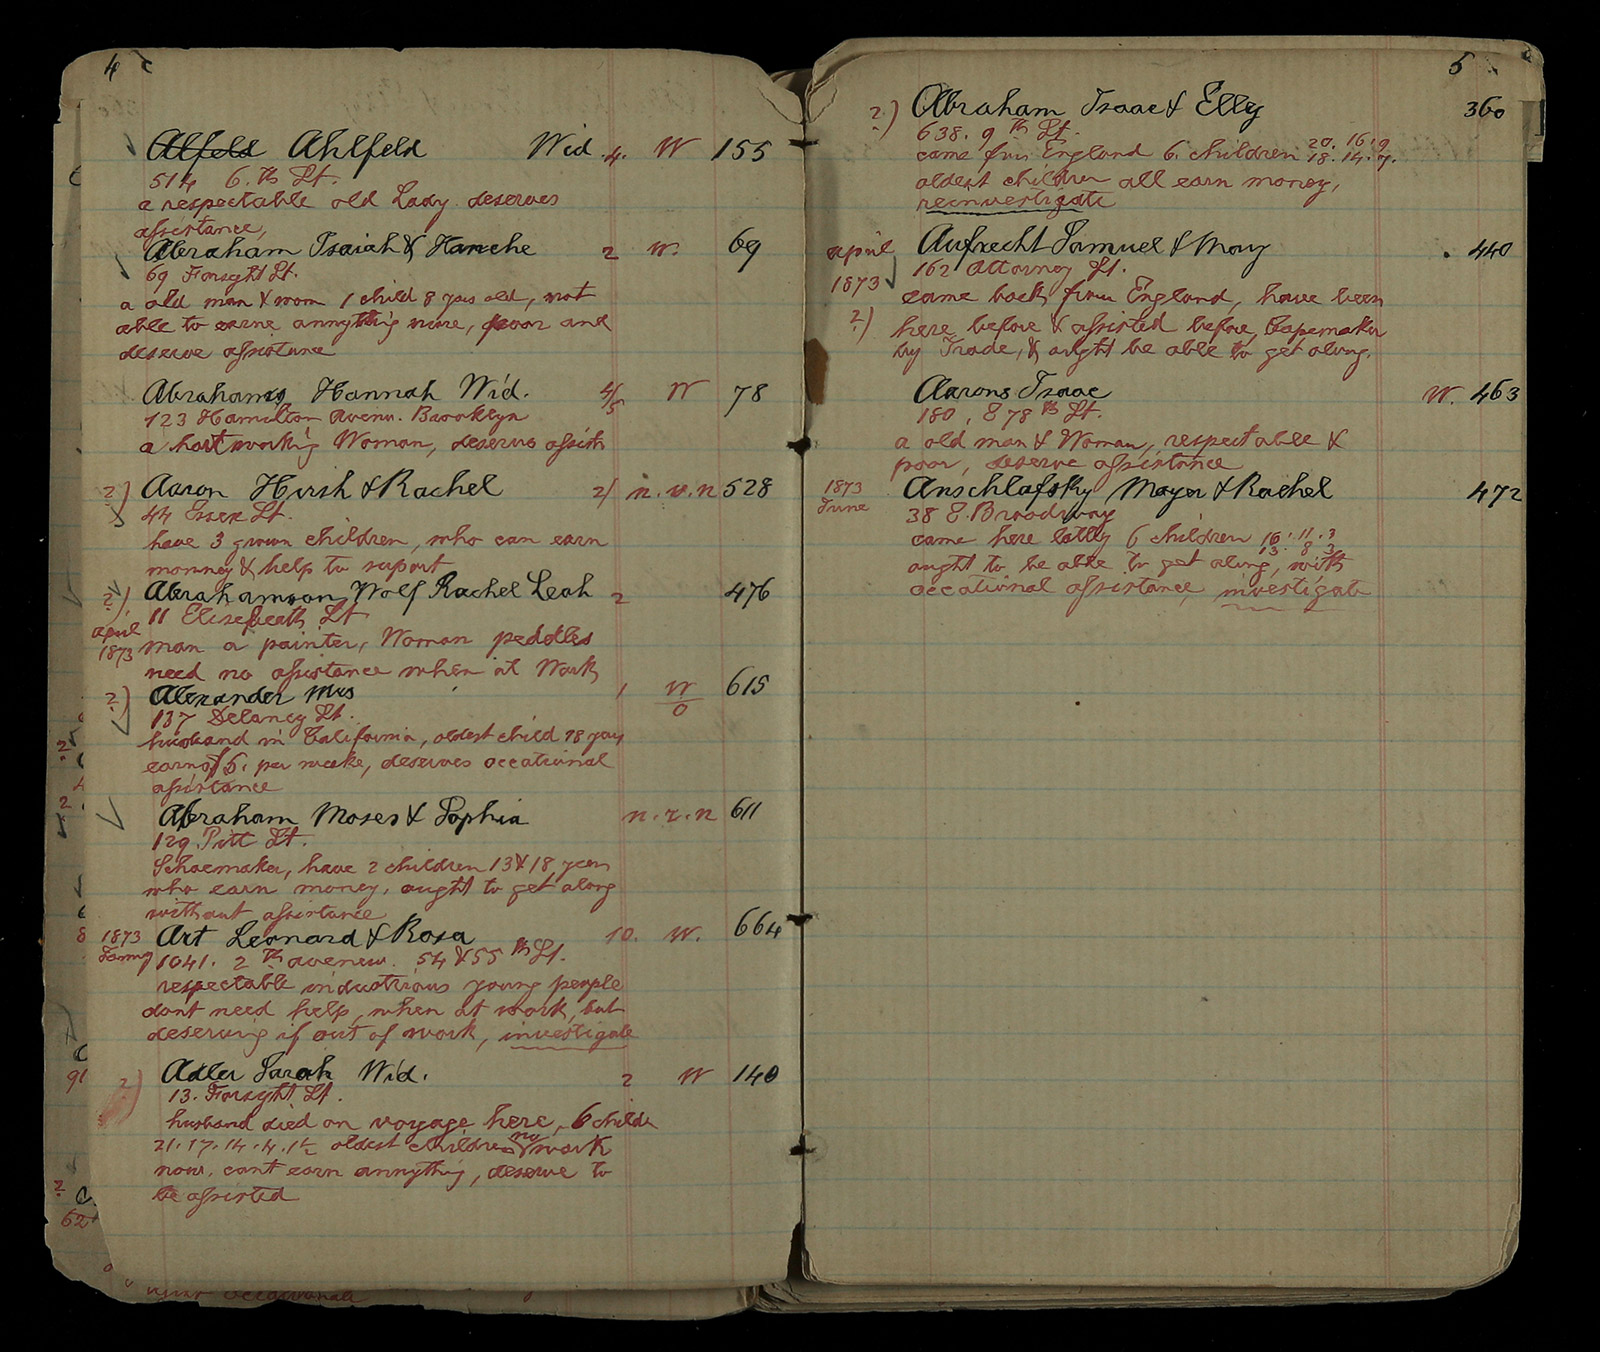 4
Alfeld Ahlfeld Wid 4. W 155
514 6.th St.
a respectable old Lady deserves
assistance,
Abraham Isaiah & Hanche 2 W. 69
69 Forsyht St.
a old man & wom 1 child 8 years old, not
able to earne annything more, poor and
deserve assistance
Abrahams Hannah Wid. 4/5 W 78
123 Hamilton Avenu. Brooklyn
a hart working Woman, deserves assist
?) Aaron Hirsh & Rachel 2/ n.v.n 528
44 Essex St.
have 3 grown children, who can earn
monney & help to suport
?) Abrahamson Wolf Rachel Leah 2 476
11 Elisebeath St
april man a painter, Woman peddles
1873 need no assistance when at Work
?) Alexander Mrs 1 W/0 615
137 Delancy St.
husband in California, oldest child 18 years
earns $5. per weeke, deserves occational
assistance
Abraham Moses & Sophia n.r.n 611
129. Pitt St.
Schoemaker, have 2 children 13 & 18 years
who earn money, ought to get along
without assistance
1873 Art Leonard & Rosa 10. W. 664
1041. 2 th avenew. 54 & 55 th St.
respectable industrious young people
dont need help, when at work, but
deserving if out of work, investigate
?) Adler Sarah Wid. 2 W 140
13. Forsyht St.
husband died on voyage here, 6 childr
21.17.14.4.1½ oldest children no work
now. cant earn annything, deserve to
be assisted
5
?) Abraham Isaac & Elly 360
638. 9 th St.
came from England 6. children 20. 16. 9
18. 14. 7.
oldest children all earn money,
reinvestigate
april Aufrecht Samuel & Mary 440
162 Attorney St.
1873 came back from England, have been
?) here before & assisted before, Capemaker
by Trade, & aught be able to get along.
Aarons Isaac W. 463
180, E 78 th St.
a old man & Woman, respectable &
poor, deserve assistance
1873 Anschlafsky Mayer & Rachel 472
June 38 E. Broadway
came here lattly 6 children 16. 11. 3
13. 8 3
aught to be able to get along, with
occational assistance, investigate